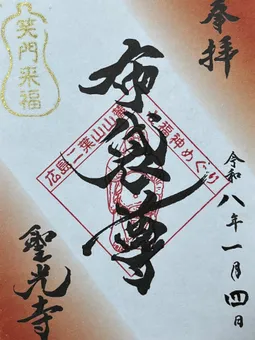 奉拝
令和八年一月四日
布袋尊
広島二葉山山麓七福神めぐり
笑門来福
聖光寺